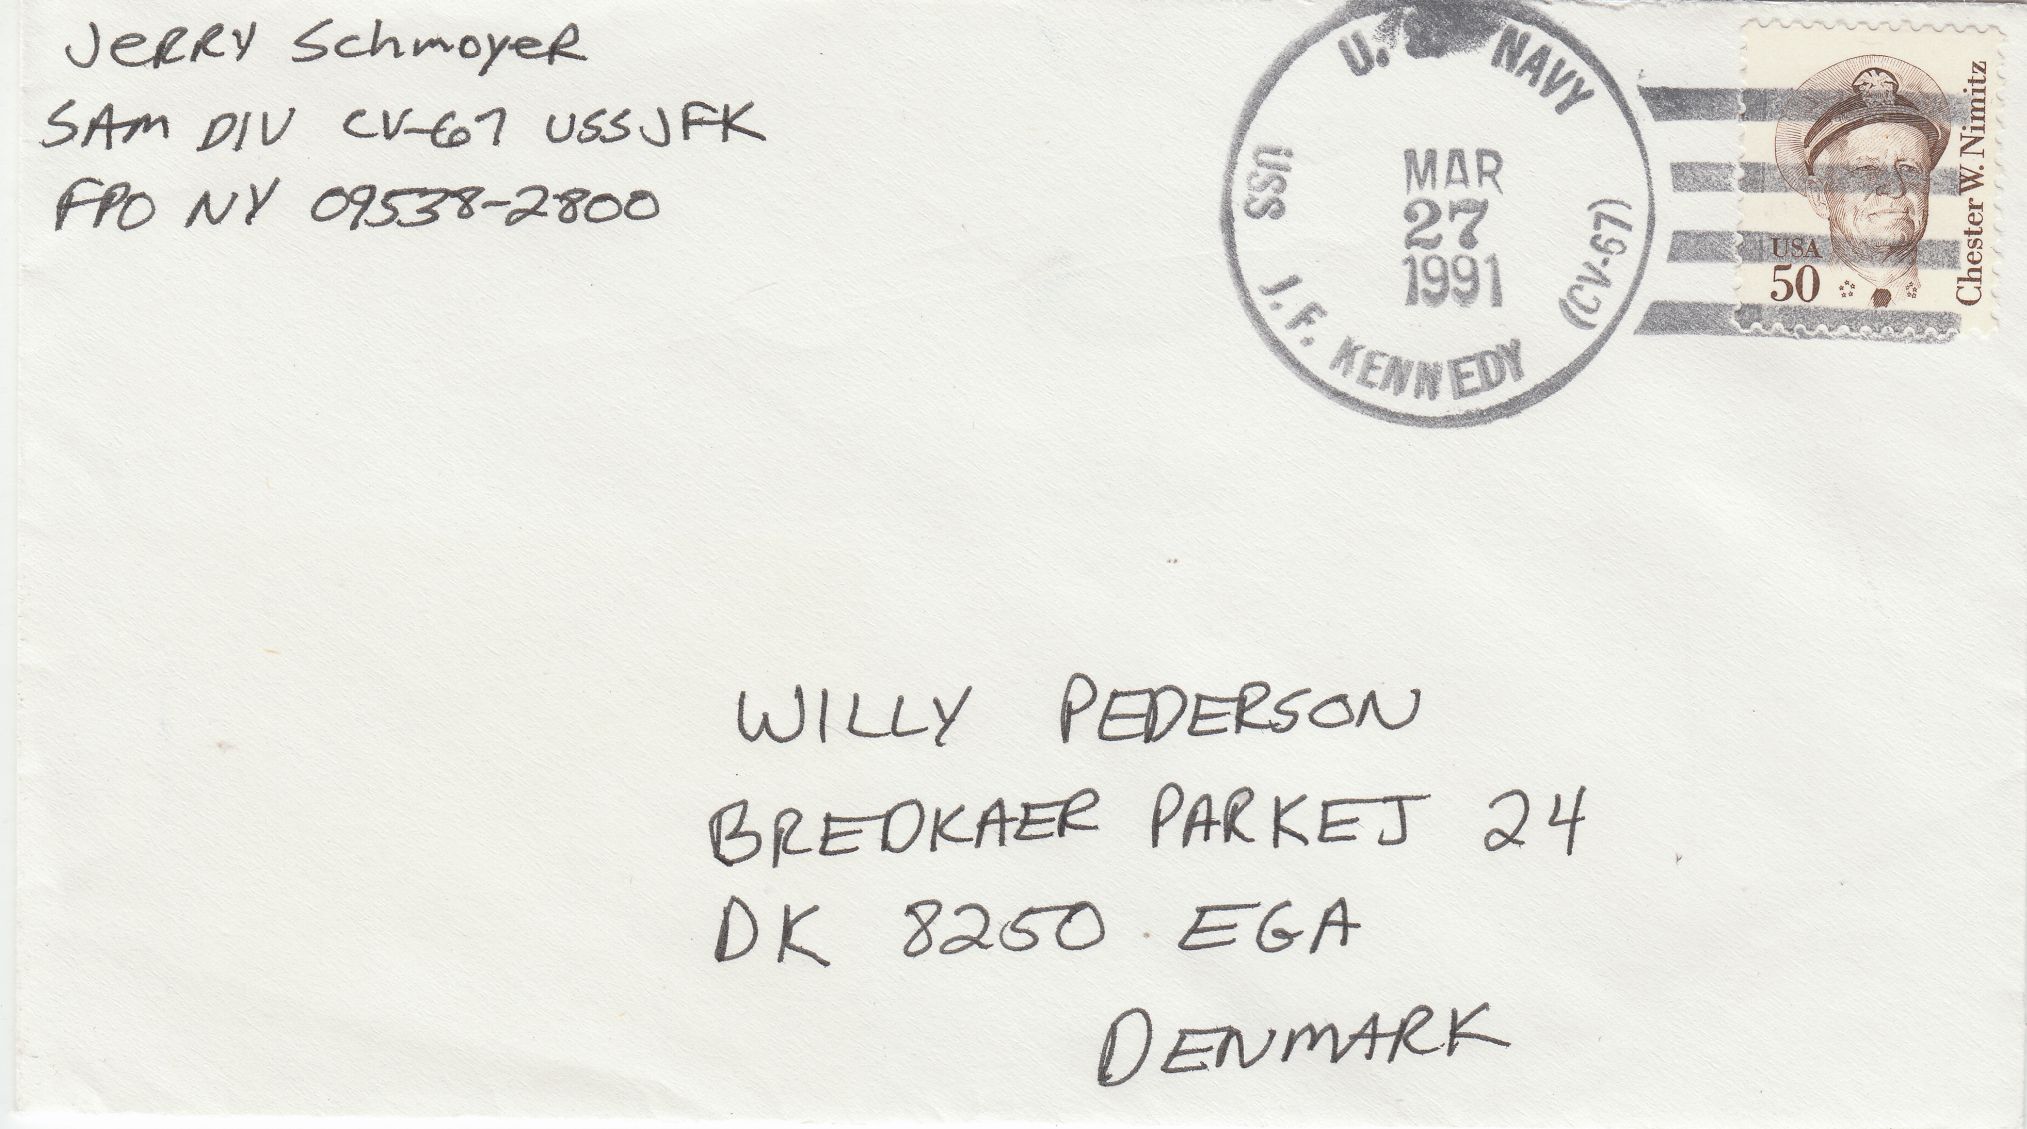 Jerry Schmoyer
SAM DIV CV-67 USS JFK
FPO NY 09538-2800
U. NAVY
USS J.F. KENNEDY (CV-67)
MAR
27
1991
USA
50
Chester W. Nimitz
WILLY PEDERSON
BREDKAER PARKEJ 24
DK 8250 EGA
DENMARK